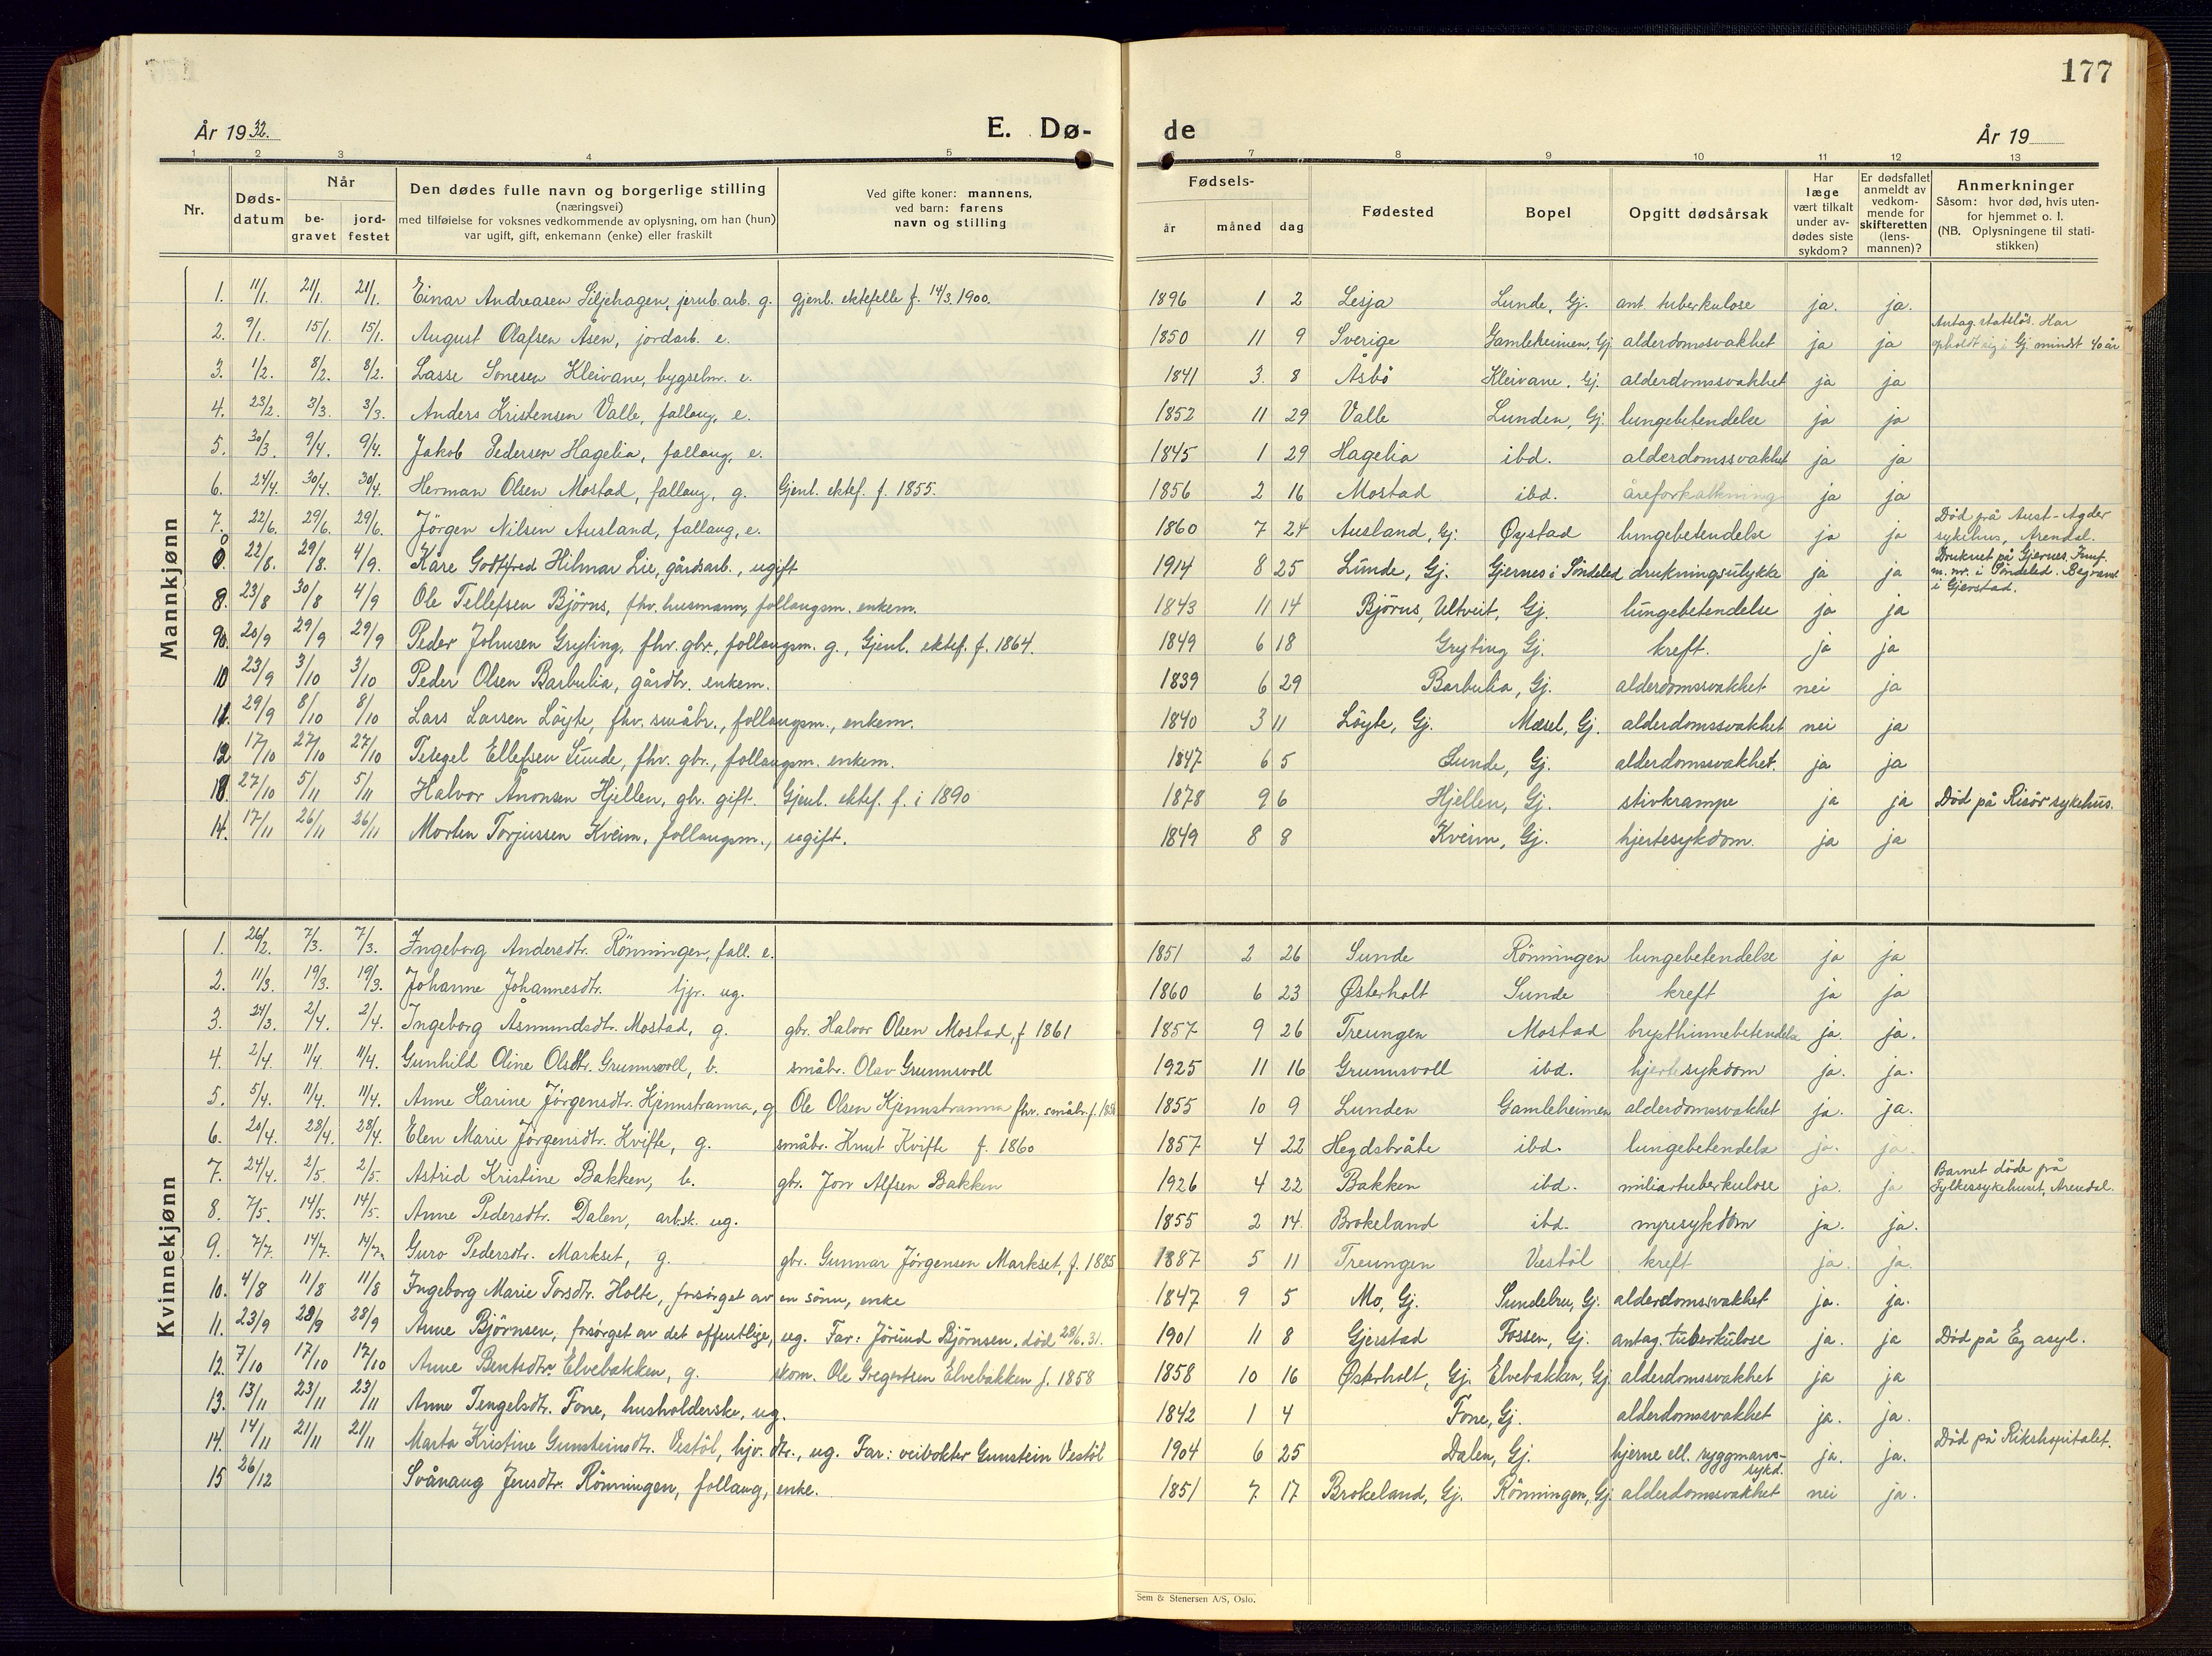 177
År 1932.
E. Dø-
de
År 19
1 2 3 4 5 6 7 8 9 10 11 12 13
Nr.
Døds-
datum
Når
be-
gravet
jord-
festet
Den dødes fulle navn og borgerlige stilling
(næringsvei)
med tilføielse for voksnes vedkommende av oplysning, om han (hun)
var ugift, gift, enkemann (enke) eller fraskilt
Ved gifte koner: mannens,
ved barn: farens
navn og stilling
Fødsels-
år måned dag
Fødested
Bopel
Opgitt dødsårsak
Har
læge
vært tilkalt
under av-
dødes siste
sykdom?
Er dødsfallet
anmeldt av
vedkom-
mende for
skifteretten
(lens-
mannen)?
Anmerkninger
Såsom: hvor død, hvis uten-
for hjemmet o. l.
(NB. Oplysningene til stati-
stikken)
Mannkjønn
1. 11/1. 21/1. 21/1. Einar Andreasen Liljehagen, jernb.arb. g. gjenl. ektefelle f. 14/3.1900. 1896 1 2 Lesja Lunde, Gj. ant. tuberkulose ja. ja.
2. 9/1. 15/1. 15/1. August Olafsen Åsen, jordarb. e. 1850 11 9 Sverige Gamleheimen, Gj alderdomssvakhet ja ja Antag. statsløs. Har
opholdt sig i Gj. mindst 40 år
3. 1/2. 8/2. 8/2. Lasse Sonesen Kleivane, bygselm. e. 1841 3. 8 Åsbö Kleivane, Gj. alderdomssvakhet ja ja
4. 23/2. 3/3. 3/3. Anders Kristensen Valle, follaug, e. 1852 11 29 Valle Lunden, Gj. lungebetendelse ja ja
5. 30/3. 9/4. 9/4. Jakob Pedersen Hagelia, follaug, e. 1845 1 29 Hagelia ibd. alderdomssvakhet ja ja
6. 24/4. 30/4. 30/4. Herman Olsen Mostad, follaug, g. Gjenl. ektef. f. 1855. 1856 2 16 Mostad ibd. åreforkalkning ja ja
7. 22/6. 29/6. 29/6. Jörgen Nilsen Ausland, follaug, e. 1860 7 24 Ausland, Gj. Øystad lungebetendelse ja ja Död på Aust-Agder
sykehus, Arendal.
8. 22/8. 29/8. 4/9. Kåre Godtfred Hilmar Lie, gårdsarb., ugift 1914 8 25 Lunde, Gj. Gjernes i Söndeled drukningsulykke ja ja Druknet på Gjernes
m. nr. i Söndeled. Begravet
i Gjerstad.
8. 23/8 30/8 4/9 Ole Tellefsen Björns, fhv. husmann, follaugsm. enkem. 1843 11 14 Björns, Ultveit, Gj. lungebetendelse ja ja
9. 20/9 29/9 29/9 Peder Johnsen Gryting, fhv. gbr., follaugsm. g., Gjenl. ektef. f. 1864. 1849 6 18 Gryting Gj. kreft. ja ja
10 23/9 3/10 3/10 Peder Olsen Barbulia, gårdbr. enkem. 1839 6 29 Barbulia, Gj. alderdomssvakhet nei ja
11. 29/9 8/10 8/10 Lars Larsen Löyte, fhv. småbr., follaugsm., enkem. 1840 3 11 Löyte, Gj. Mæsel, Gj. alderdomssvakhet nei ja
12 17/10 27/10 27/10 Ellefsen Lunde, fhv. gbr., follaugsm. enkem. 1847 6 5 Lunde, Gj. alderdomssvakhet. ja ja
13. 27/10 5/11 5/11 Halvor Ånonsen Hjellen, gbr. gift. Gjenl. ektef. f. i 1890 1878 9 6 Hjellen, Gj. stivkrampe ja ja Död på Risör sykehus.
14. 17/11 26/11 26/11 Morten Torjussen Kveim, follaugsm., ugift. 1849 8 8 Kveim, Gj. hjertesykdom. ja ja
Kvinnekjønn
1. 26/2. 7/3. 7/3. Ingeborg Andersdtr. Rönningen, foll. e. 1851 2 26 Lunde Rönningen lungebetendelse ja ja
2. 11/3. 19/3. 19/3. Johanne Johannesdtr. tjp. ug. 1860 6 23 Østerholt Lunde kreft ja ja
3. 24/3. 2/4. 2/4. Ingeborg Åsmundsdtr. Mostad, g. gbr. Halvor Olsen Mostad, f 1861 1857 9 26 Treungen Mostad brysthinnebetendelse ja. ja.
4. 2/4. 11/4. 11/4. Gunhild Oline Olsdtr. Grunnsvoll, b. småbr. Olav Grunnsvoll 1925 11 16 Grunnsvoll ibd. hjertesykdom ja. ja.
5. 5/4. 11/4. 11/4. Anne Karine Jörgensdtr. Kjennstranna, g Ole Olsen Kjennstranna fhv. småbr. f. 1856 1855 10 9 Lunden Gamleheimen alderdomssvakhet ja. ja.
6. 20/4. 28/4. 28/4. Elen Marie Jörgensdtr. Kvifte, g. småbr. Knut Kvifte f. 1860 1857 4 22 Hegdebråte ibd. lungebetendelse ja. ja.
7. 24/4. 2/5. 2/5. Astrid Kristine Bakken, b. gbr. Jon Alfsen Bakken 1926 4 22 Bakken ibd. miliartuberkulose ja. ja Barnet döde på
Fylkessykehuset, Arendal.
8. 7/5. 14/5. 14/5. Anne Pedersdtr. Dalen, arb.sk. ug. 1855 2 14. Brokeland ibd. nyresykdom ja. ja.
9. 7/7. 14/7. 14/7. Guro Pedersdtr. Markset, g. gbr. Gunnar Jörgensen Markset, f. 1885 1887 5 11 Treungen Vestöl kreft ja. ja.
10. 4/8 11/8 11/8 Ingeborg Marie Torsdtr. Holte, forsörget av en sönn, enke 1847 9 5 Mo, Gj. Sundebru, Gj. alderdomssvakhet ja. ja.
11. 23/9 28/9 28/9 Anne Björnsen, forsörget av det offentlige, ug. Far: Jörund Björnsen, död 29/6.31. 1901 11 8 Gjerstad Fossen, Gj. antag. tuberkulose ja. ja Död på Eg asyl.
12. 7/10 17/10 17/10 Anne Bentsdtr. Elvebakken, g. skom. Ole Gregertsen Elvebakken f. 1858 1858 10 16 Østerholt, Gj. Elvebakken, Gj alderdomssvakhet ja ja
13. 13/11 23/11 23/11 Anne Tengelsdtr. Fone, husholderske, ug. 1842 1 4 Fone, Gj. alderdomssvakhet ja. ja.
14. 14/11 21/11 21/11 Marta Kristine Gunsteinsdtr. Vestöl, hjv. dtr., ug. Far: veivokter Gunstein Vestöl 1904 6 25 Dalen, Gj. hjerne ell. ryggmarvs-
sykd. ja. ja. Död på Rikshospitalet.
15 26/12 Svånaug Jensdtr. Rönningen, follaug, enke. 1851 7 17 Brokeland, Gj. Rönningen, Gj. alderdomssvakhet nei ja.
Sem & Stenersen A/S, Oslo.